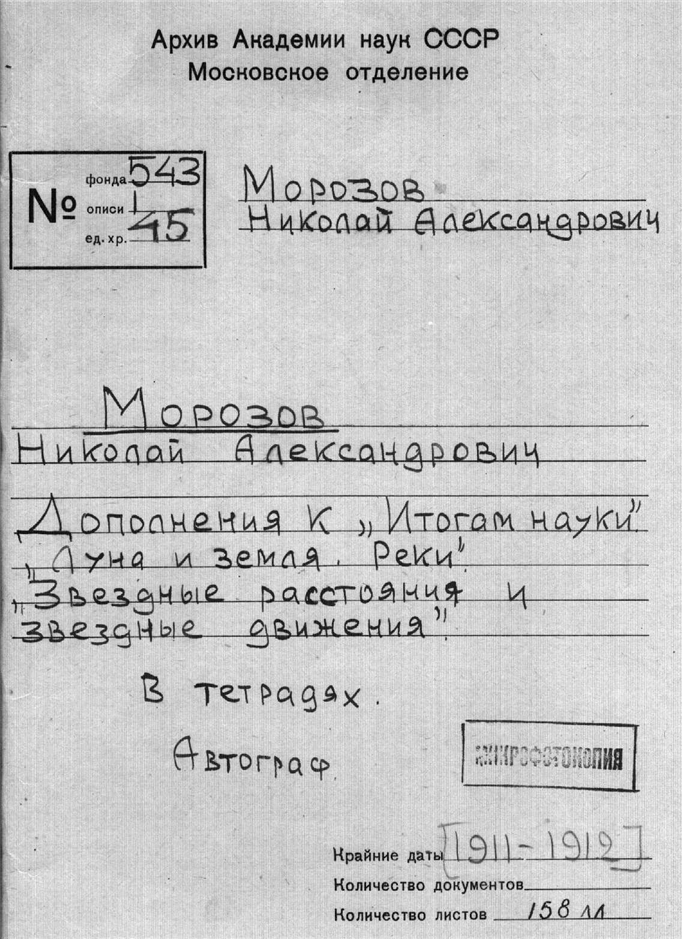 Архив Академии наук СССР
Московское отделение
№
фонда 543
описи 1
ед. хр. 45
Морозов
Николай Александрович
Морозов
Николай Александрович
Дополнения к „Итогам науки".
„Луна и земля. Реки".
„Звездные расстояния и
звездные движения".
В тетрадях.
Автограф.
МИКРОФОТОКОПИЯ
Крайние даты [1911-1912]
Количество документов
Количество листов 158 лл